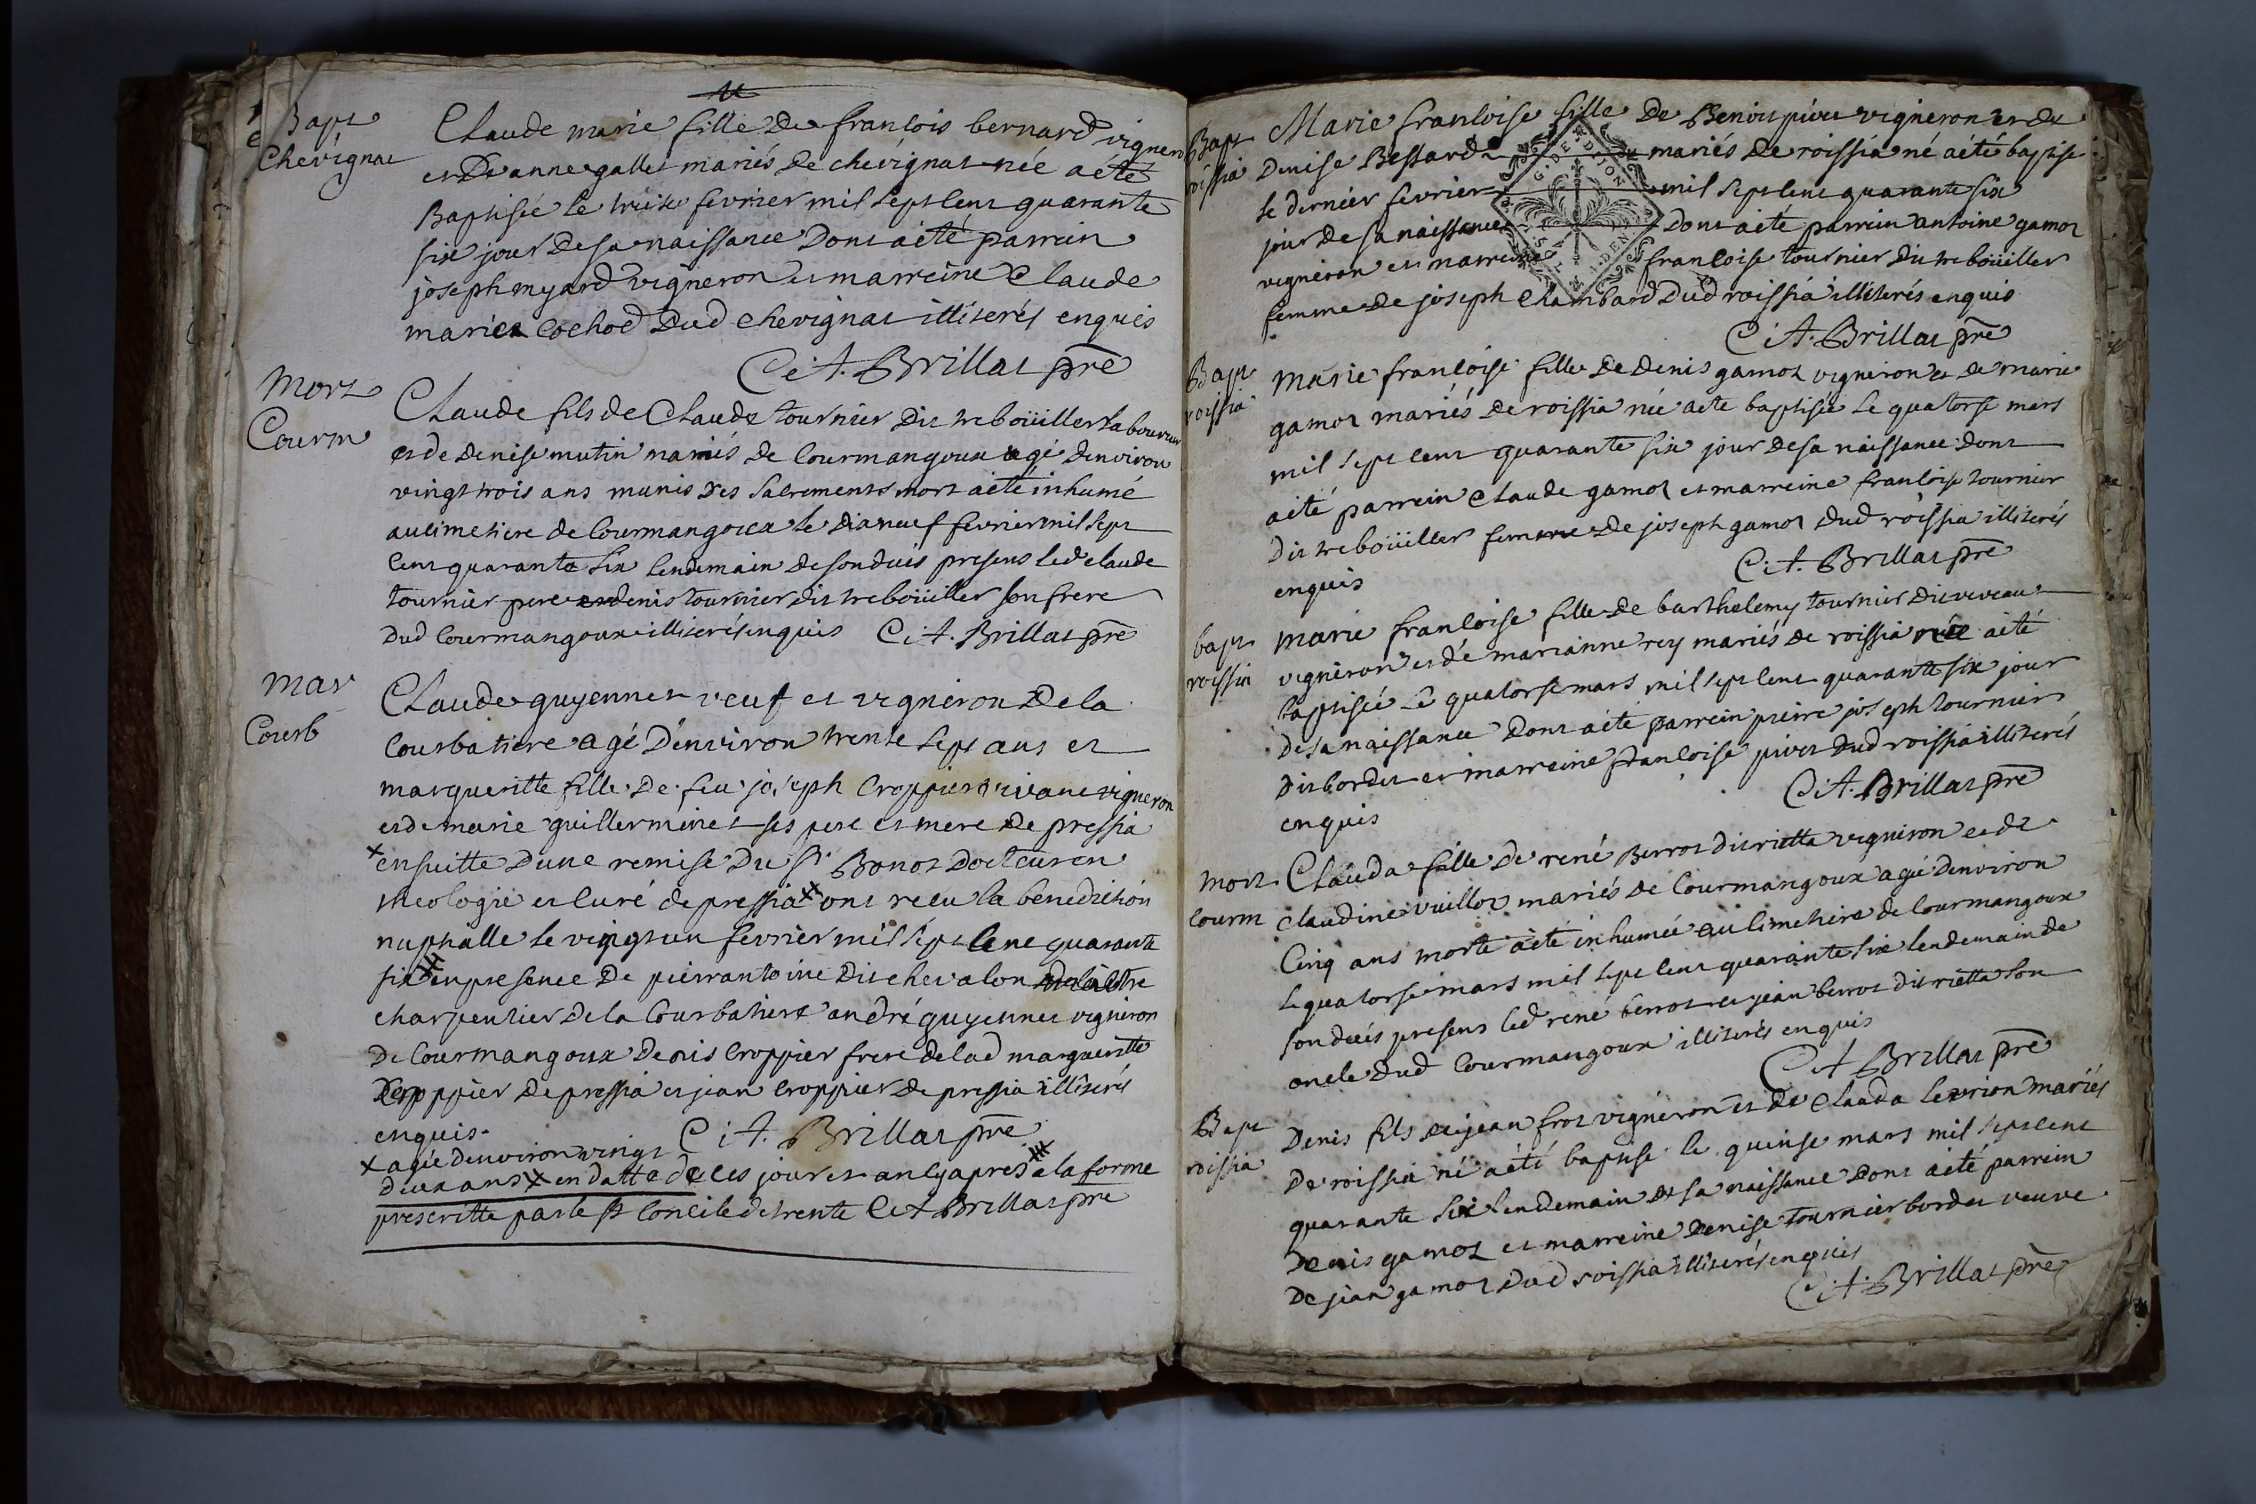 Bapt
Chevignat
Claude marie fille de francois bernard vigneron
et de anne gallet mariés de chevignat née a été
Baptisée le treize fevrier mil sept cent quarante
six jour de sa naissance dont a été parrein
joseph myard vigneron et marreine Claude
marie cochod dud chevignat illiterés enquis
C:A. Brillat pre
Mort
Courm
Claude fils de Claude tournier dit treboüiller laboureur
et de denise mutin mariés de Courmangoux agé denviron
vingt trois ans munis des sacrements mort a été inhumé
au cimetiere de Courmangoux le dixneuf fevrier mil sept
cent quarante six lendemain de son deuis presens led claude
tournier pere et denis tournier dit treboüiller son frere
dud Courmangoux illiterés enquis C:A. Brillat pre
Mar
Courb
Claude guyennet veuf et vigneron de la
Courbatiere agé d'environ trente sept ans et
margueritte fille de feu joseph Croppier vivant vigneron
et de marie guillerminet ses pere et mere de pressia
x ensuitte dune remise du sr Bonot docteur en
theologie et curé de pressia x ont recu la benediction
nuptialle le vingt un fevrier mil sept cent quarante
six # en presence de pierrantoine dit chevalon
charpentier de la Courbatiere andré guyennet vigneron
de Courmangoux denis Croppier frere de lad margueritte
Croppier de pressia et jean Croppier de pressia illiterés
enquis. C:A. Brillat pre
x agée denviron vingt
deux ans x en datte de ces jour et an cy apres # a la forme
prescritte par le st Concile de trente C:A Brillat pre
Bapt
roissia
Marie francoise fille de Benoit pivet vigneron et de
Denise Bessard mariés de roissia né a été baptise
le dernier fevrier mil sept cent quarante six
jour de sa naissance dont a été parrein antoine gamoz
vigneron et marreine francoise tournier dit treboüiller
femme de joseph Chambard dud roissia illiterés enquis
C:A. Brillat pre
G. DE DIJON
Bapt
roissia
marie francoise fille de denis gamoz vigneron et de marie
gamoz mariés de roissia née a été baptisée le quatorse mars
mil sept cent quarante six jour de sa naissance dont
a été parrein claude gamoz et marreine francoise tournier
dit treboüiller femme de joseph gamoz dud roissia illiterés
enquis
C:A. Brillat pre
bapt
roissia
marie francoise fille de barthelemy tournier dit veveau
vigneron et de marianne rey mariés de roissia née a été
baptisée le quatorse mars mil sept cent quarante six jour
de sa naissance dont a été parrein pierre joseph tournier
dit bordet et marreine francoise pivet dud roissia illiterés
enquis
C:A. Brillat pre
Mort
Courm
Clauda fille de rené Berrot dit rietta vigneron et de
claudine vuilloz mariés de Courmangoux agé denviron
Cinq ans morte a été inhumée au cimetiere de Courmangoux
le quatorse mars mil sept cent quarante six lendemain de
son deuis presens led rené berrot et jean berrot dit rietta son
oncle dud Courmangoux illiterés enquis
C:A Brillat pre
Bapt
roissia
Denis fils de jean froz vigneron et de Clauda levrion mariés
de roissia né a été baptisé le quinse mars mil sept cent
quarante six lendemain de sa naissance dont a été parrein
denis gamoz et marreine denise tournier bordet veuve
de jean gamoz dud roissia illiterés enquis
C:A. Brillat pre